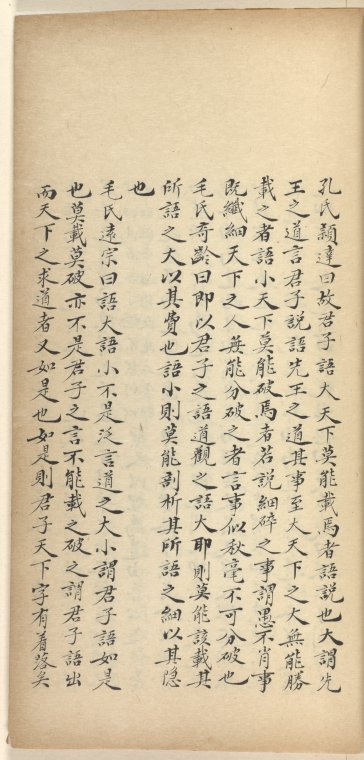 孔氏穎達曰故君子語大天下莫能載焉者語說也大謂先
王之道言君子說語先王之道其事至大天下之大無能勝
載之者語小天下莫能破焉者若說細碎之事謂愚不肖事
既纖細天下之人無能分破之者言事似秋毫不可分破也
毛氏奇齡曰即以君子之語道觀之語大耶則莫能該載其
所語之大以其費也語小則莫能剖析其所語之細以其隱
也
毛氏遠宗曰語大語小不是泛言道之大小謂君子語如是
也莫載莫破亦不是君子之言不能載之破之謂君子語出
而天下之求道者又如是也如是則君子天下字有着落矣